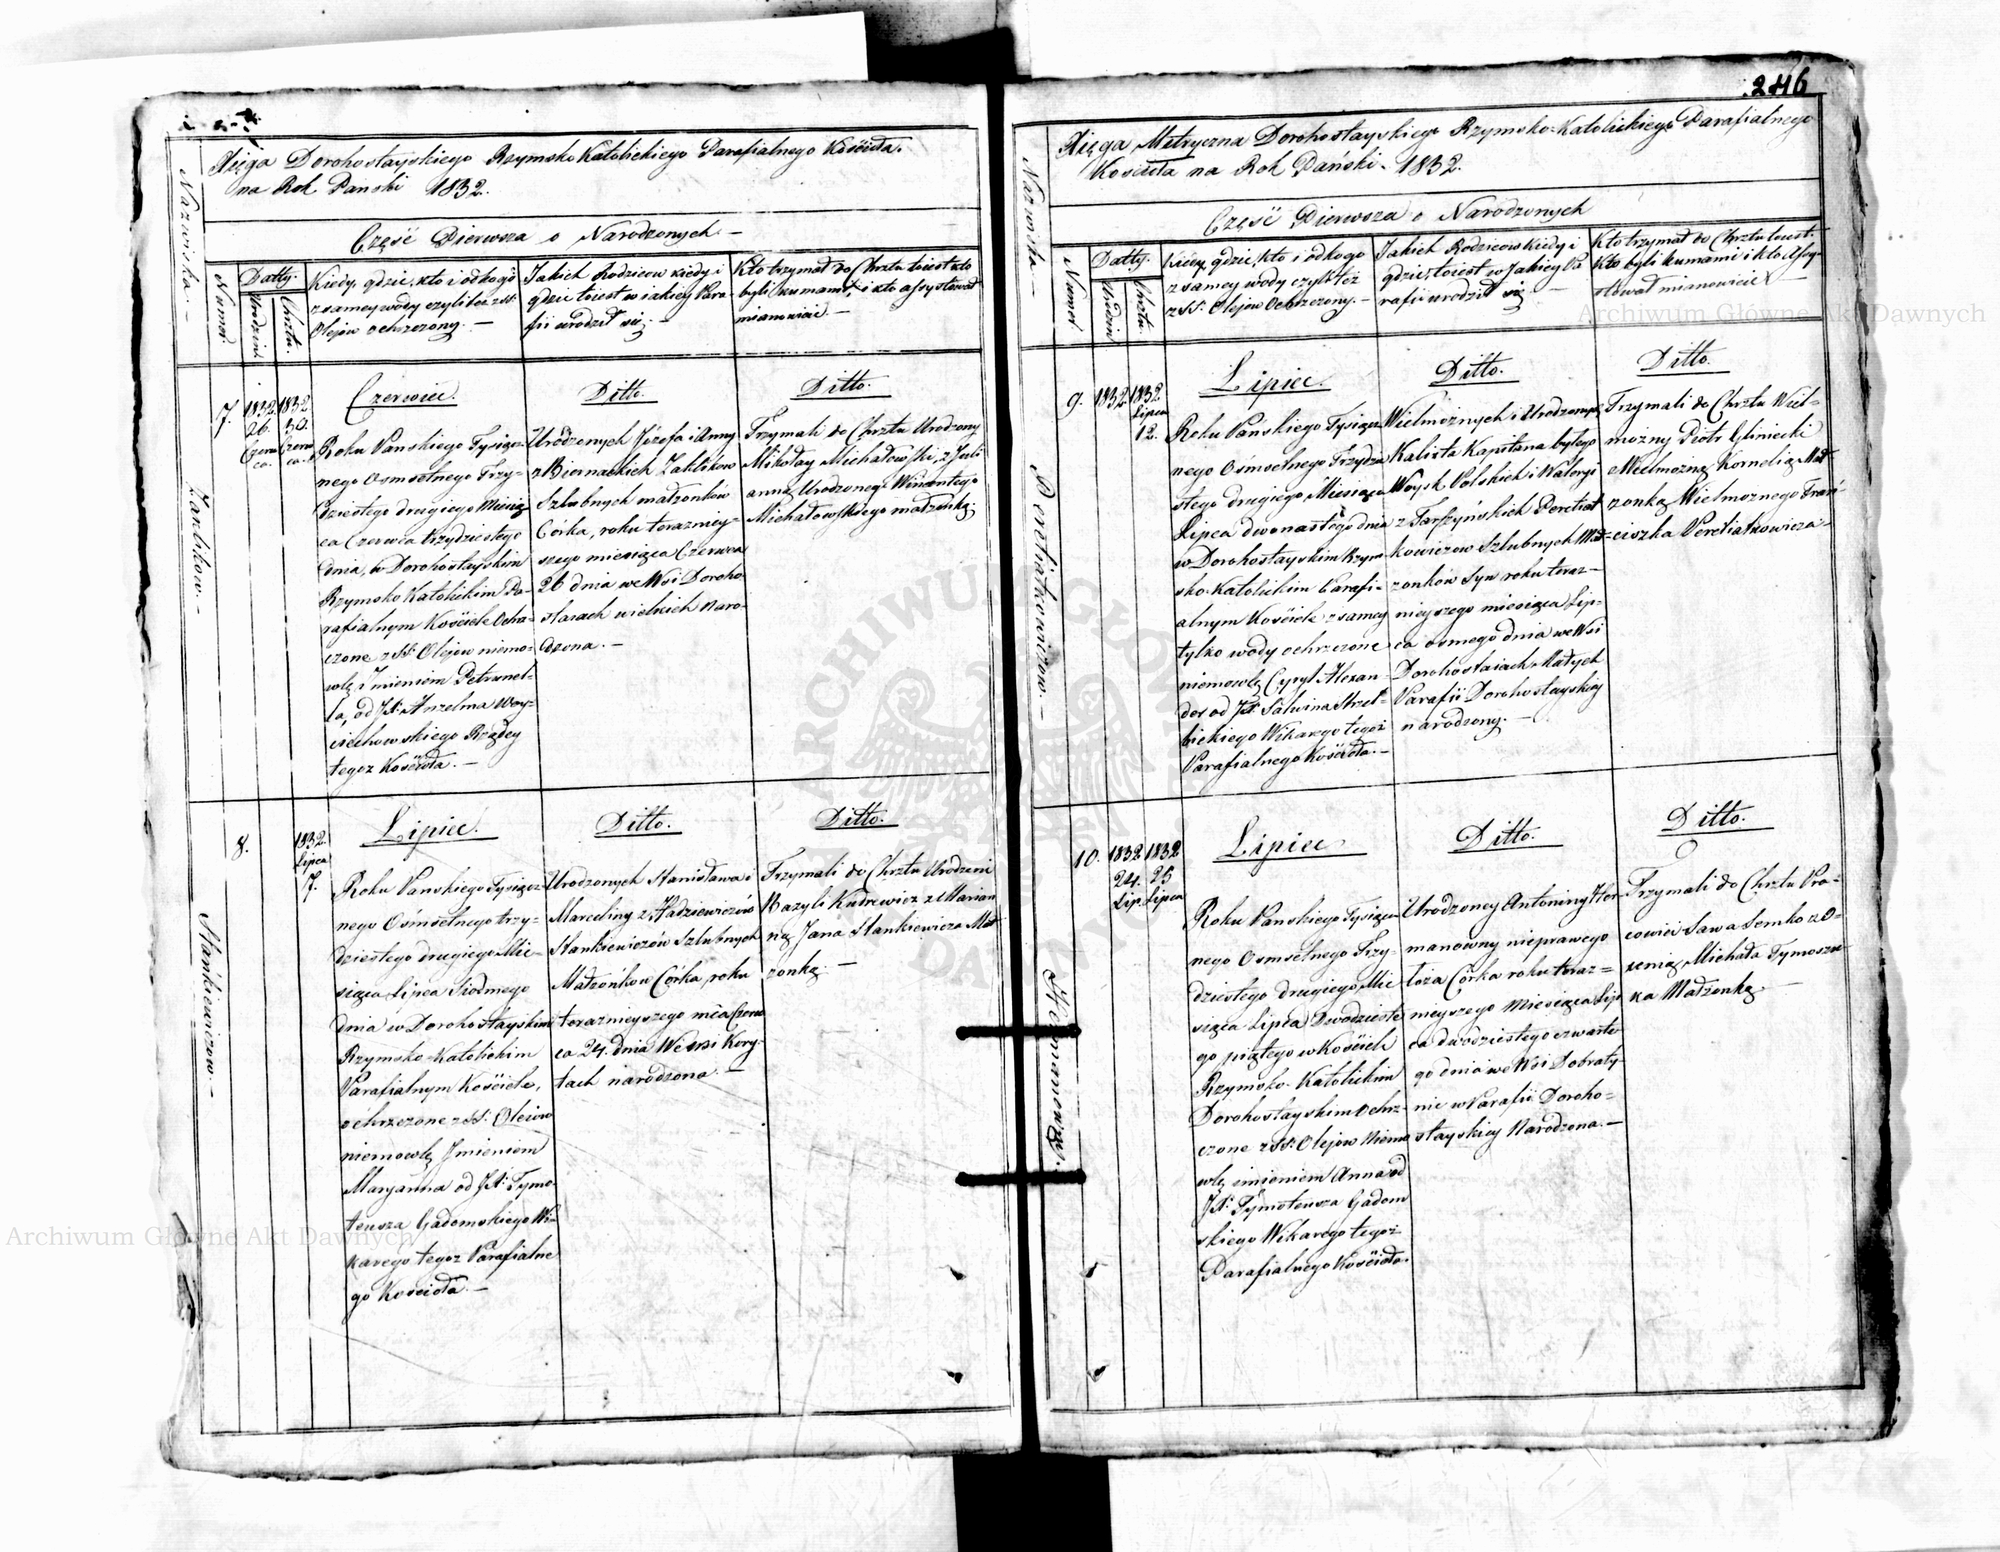 Xięga Dorohostayskiego Rzymsko Katolickiego Parafialnego Kościoła.
na Rok Pański 1832.
Część Pierwsza o Narodzonych –
Nazwiska. –
Numer
Datty.
Urodzin
Chrztu.
Kiedy, gdzie, kto i od kogo
z samey wody czyli też z SS.
Olejów ochrzczony. –
Jakich Rodziców kiedy i
gdzie toiest w iakiey Para
fii urodził się. –
Kto trzymał do Chrztu toiest kto
byli kumami, i kto assystował
mianowicie. –
7.
1832
26.
Czerw
ca.
1832
30.
Czerw
ca.
Czerwiec.
Roku Pańskiego Tysiącz
nego Osmsetnego Trzy-
dziestego drugiego Miesią
ca Czerwca trzydziestego
dnia, w Dorohostayskim
Rzymsko Katolickim Pa-
rafialnym Kościele Ochrz-
czone z SS. Olejow niemo-
wlę Imieniem Petronel-
la, od JX. Anzelma Woy-
ciechowskiego Rządcy
tegoż Kościoła. –
Ditto.
Urodzonych Józefa i Anny
z Biernackich Zahlikow
Szlubnych małżonków
Córka, roku teraźniey-
szego miesiąca Czerwca
26 dnia we Wsi Doroho
staiach wielkich Naro-
dzona. –
Ditto.
Trzymali do Chrztu Urodzony
Mikołay Michałowski, z Juli
anną Urodzonego Wincentego
Michałowskiego małżonką.
8.
Stańkiewiczow. –
1832.
Lipca
7.
Lipiec.
Roku Pańskiego Tysiącz-
nego Osmsetnego trzy-
dziestego drugiego Mie-
siąca Lipca Siodmego
dnia w Dorohostayskim
Rzymsko-Katolickim
Parafialnym Kościele,
ochrzczone z SS. Olejow
niemowlę Imieniem
Maryanna od JX. Tymo
teusza Gadomskiego Wi-
karego tegoż Parafialne
go Kościoła. –
Ditto.
Urodzonych Stanisława i
Marcelliny z Hadziewiczów
Stankiewiczów Szlubnych
Małżonkow Córka, roku
teraznieyszego mca Czerw
ca 24. dnia We Wsi Kory-
tach narodzona. –
Ditto.
Trzymali do Chrztu Urodzeni
Bazyli Kudrewicz z Marian
ną Jana Stankiewicza Mał
żonką. –
246
Xięga Metryczna Dorohostayskiego Rzymsko-Katolickiego Parafialnego
Kościoła na Rok Pański. 1832.
Część Pierwsza o Narodzonych
Nazwiska –
Numer
Datty.
Urodzin
Chrztu.
Kiedy, gdzie, kto i od kogo
z samey wody czyli też
z SS. Olejow Ochrzczony. –
Jakich Rodzicow kiedy i
gdzie toiest w Jakiey Pa
rafii urodził się –
Kto trzymał do Chrztu toiest
Kto byli kumami i kto Assy-
stował mianowicie –
9.
Peretiatkowiczow. –
1832
1832
Lipca
12.
Lipiec.
Roku Pańskiego Tysiącz
nego Osmsetnego Trzydzie
stego drugiego Miesiąca
Lipca dwunastego dnia
w Dorohostayskim Rzym
sko-Katolickim Parafi-
alnym Kościele z samey
tylko wody ochrzczone
niemowlę Cyryl Alexan
der od JX. Salwina Strzel-
bickiego Wikarego tegoż
Parafialnego Kościoła. –
Ditto.
Wielmożnych i Urodzonych
Kalixta Kapitana byłego
Woysk Polskich i Waleryi
z Tarszyńskich Peretiat
kowiczow Szlubnych Mał-
żonków Syn roku teraz-
nieyszego miesiąca Lip-
ca osmego dnia we Wsi
Dorohostaiach Małych
Parafii Dorohostayskiey
narodzony. –
Ditto.
Trzymali do Chrztu Wiel-
możny Piotr Gliniecki
z Wielmożną Kornelią Mał
żonką Wielmożnego Fran-
ciszka Peretiatkowicza –
10.
Hermanowny. –
1832
24.
Lip.
1832
25
Lipca
Lipiec
Roku Pańskiego Tysiącz
nego Osmsetnego Trzy-
dziestego drugiego Mie
siąca Lipca Dwodzieste
go piątego w Kościele
Rzymsko-Katolickim
Dorohostayskim Ochrz-
czone z SS. Olejow Niemo
wlę imieniem Anna od
JX. Tymoteusza Gadom
skiego Wikarego tegoż
Parafialnego Kościoła.
Ditto.
Urodzoney Antoniny Her
manowny nieprawego
łoża Córka roku teraz=
nieyszego Miesiąca Lip
ca dwódziestego czwarte
go dnia we Wsi Dobraty-
nie w Parafii Doroho=
stayskiey Narodzona. –
Ditto.
Trzymali do Chrztu Pra-
cowici Sawa Semko z O-
xenią, Michała Tymoszu-
ka Małżonką –
Archiwum Główne Akt Dawnych
Archiwum Główne Akt Dawnych